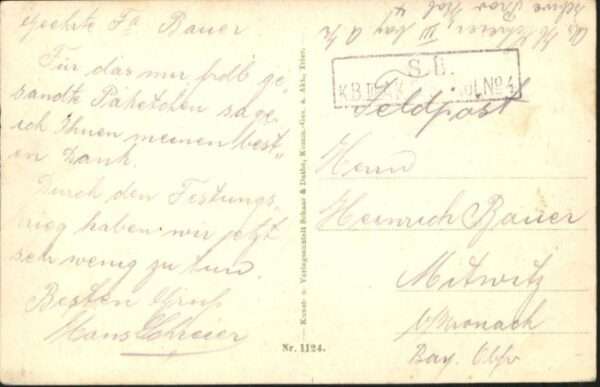 Geehrte Fa Bauer
Für das mir frdl. ge-
sandte Päketchen sage
ich Ihnen meinen best-
en Dank.
Durch den Festungs-
krieg haben wir jetzt
sehr wenig zu tun.
Besten Gruß
Hans Schreier
Kunst- u. Verlagsanstalt Schaar & Dathe, Komm.-Ges. a. Akt., Trier.
Nr. 1124.
Schreier III bay. A. K.
S. B.
K.B. III No 4
Feldpost
Herrn
Heinrich Bauer
Mitwitz
b/Kronach
Bay. Obfr